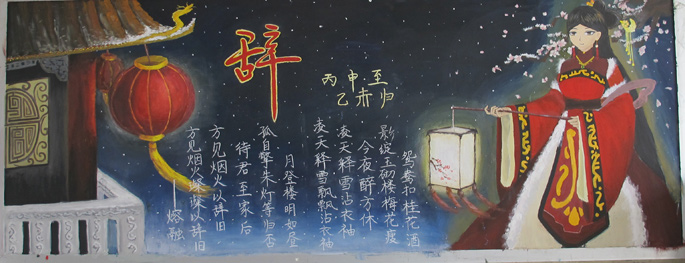 辞
丙申至
乙未归
鸳鸯扣桂花酒
影绽玉砌楼梅花瘦
今夜醉方休
凌天释雪沾衣袖
凌天释雪飘飘沾衣袖
月登楼明如昼
孤自擎朱灯等归否
待君至家后
方见烟火以辞旧
方见烟火缭缭以辞旧
——熔融